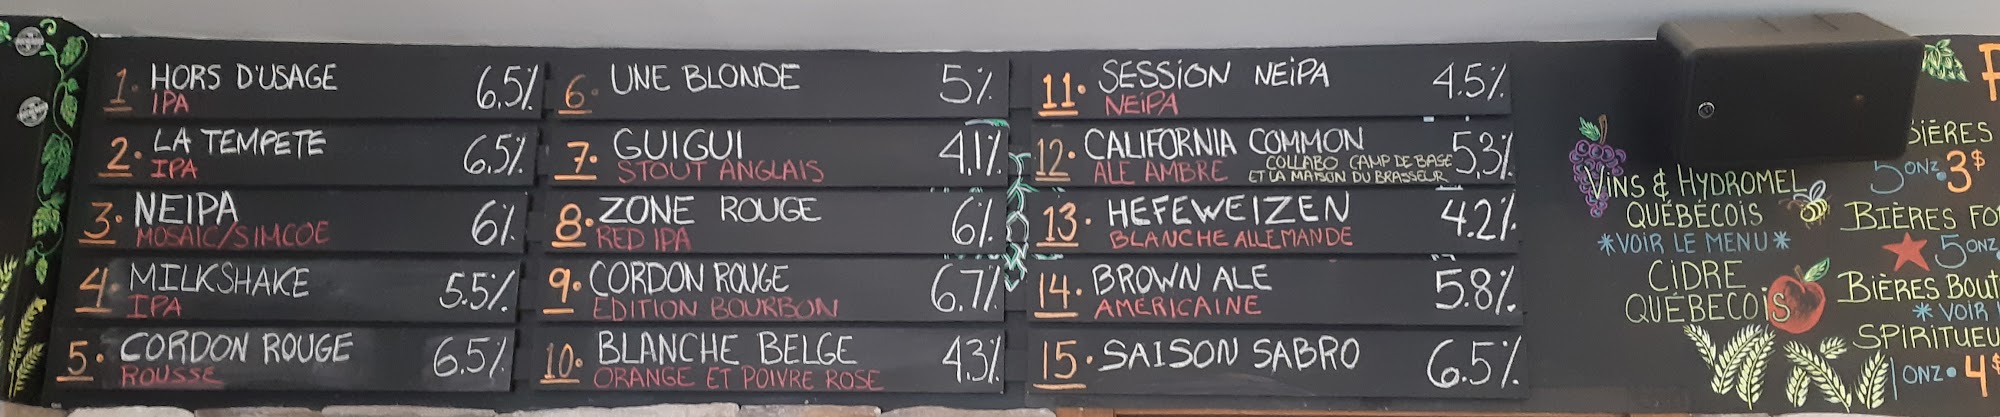 1. HORS D'USAGE 6.5%
IPA
2. LA TEMPETE 6.5%
IPA
3. NEIPA 6%
MOSAIC/SIMCOE
4. MILKSHAKE 5.5%
IPA
5. CORDON ROUGE 6.5%
ROUSSE
6. UNE BLONDE 5%
7. GUIGUI 4,1%
STOUT ANGLAIS
8. ZONE ROUGE 6%
RED IPA
9. CORDON ROUGE 6.7%
EDITION BOURBON
10. BLANCHE BELGE 4.3%
ORANGE ET POIVRE ROSE
11. SESSION NEIPA 4.5%
NEIPA
12. CALIFORNIA COMMON 5,3%
ALE AMBRE COLLABO CAMP DE BASE
ET LA MAISON DU BRASSEUR
13. HEFEWEIZEN 4.2%
BLANCHE ALLEMANDE
14. BROWN ALE 5.8%
AMERICAINE
15. SAISON SABRO 6.5%
VINS & HYDROMEL
QUÉBÉCOIS
*VOIR LE MENU*
CIDRE
QUÉBECOIS
BIÈRES
5 ONZ. 3$
BIÈRES
5 ONZ
BIÈRES
* VOIR
1 ONZ. 4$